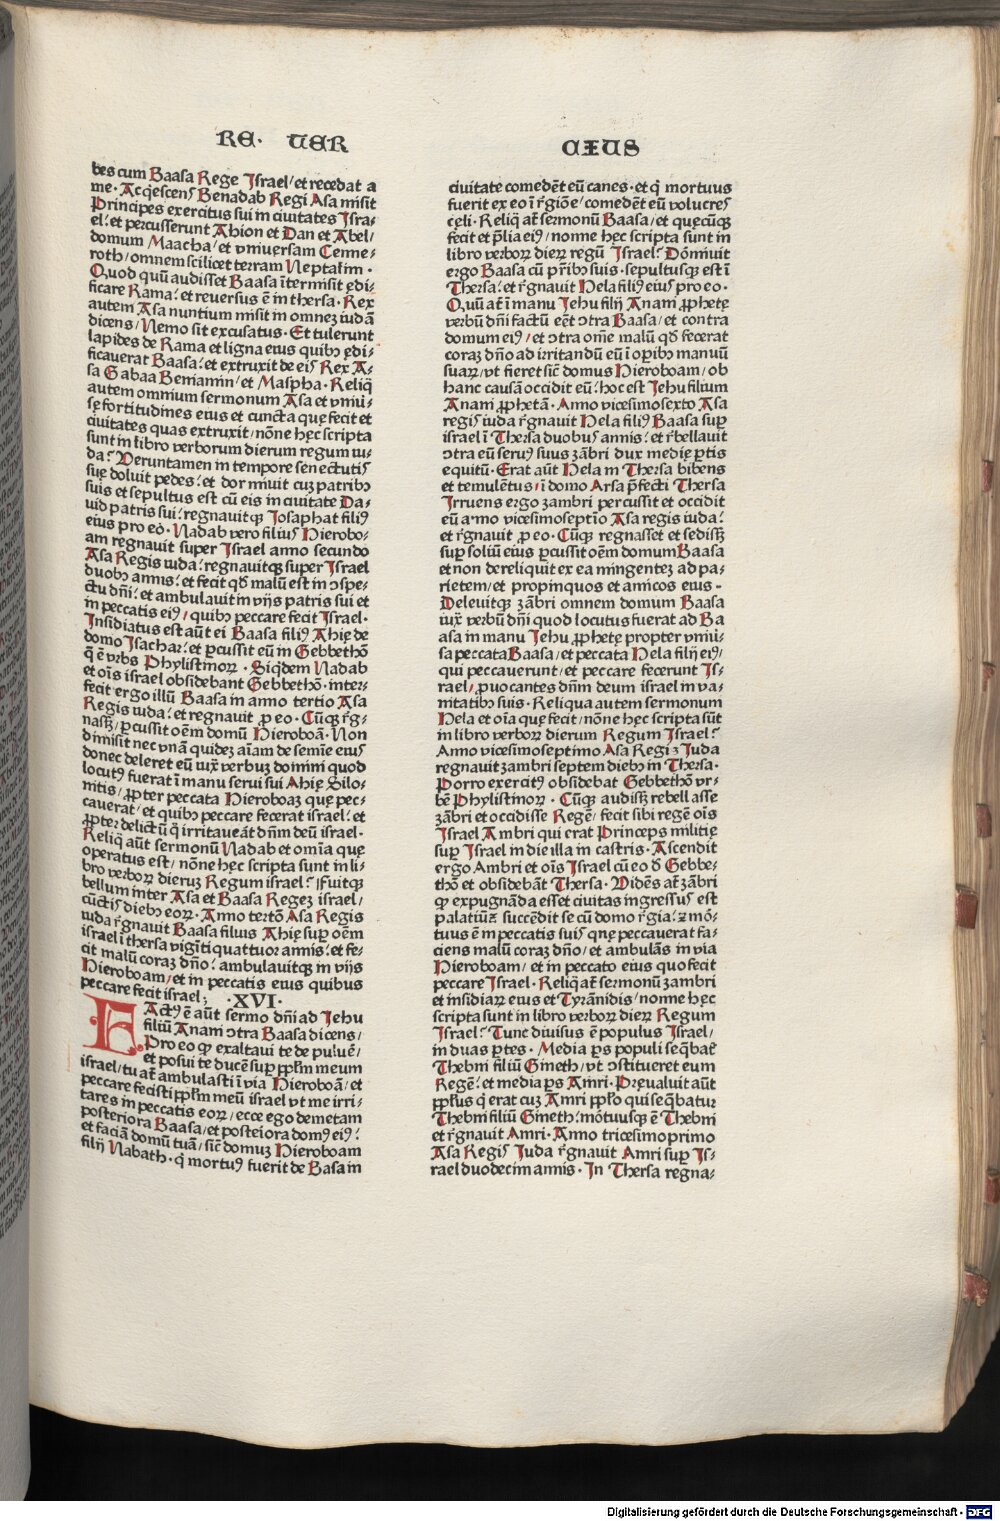 RE· TER
CIUS
bes cum Baasa Rege Israel/ et recedat a
me· Acq̄escenſ Benadab Regi Asa misit
Principes exercitus sui in ciuitates Isra⸗
el/ et percusserunt Ahion et Dan et Abel/
domum Maacha/ et vniuersam Cenne⸗
roth/ omnem scilicet terram Neptalim·
Quod quū audisset Baasa ītermisit ędi⸗
ficare Rama: et reversus ē in thersa· Rex
autem Asa nuntium misit in omnez iudā
dicens/ Nemo sit excusatus· Et tulerunt
lapides de Rama et ligna eius quibꝯ ędi⸗
ficauerat Baasa: et extruxit de eiſ Rex A⸗
sa Gabaa Beniamin/ et Maspha· Reliq̄
autem omnium sermonum Asa et vniu⸗
sę fortitudines eius et cuncta quę fecit et
ciuitates quas extruxit/ nōne hęc scripta
sunt in libro verborum dierum regum iu⸗
da: Veruntamen in tempore senectutiſ
suę doluit pedes: et dormiuit cuꝫ patribꝯ
suis et sepultus est cū eis in ciuitate Da⸗
uid patris sui: regnauitqꝫ Iosaphat filiꝯ
eius pro eo· Nadab vero filiuſ Hierobo⸗
am regnauit super Israel anno secundo
Asa Regis iuda: regnauitqꝫ super Israel
duobꝯ annis: et fecit qd̄ malū est in ↄspe⸗
ctu dn̄i: et ambulauit in vijs patris sui et
in peccatis eiꝯ/ quibꝯ peccare fecit Israel·
Insidiatus est aūt ei Baasa filiꝯ Ahię de
domo Isachar: et ꝑcussit eū in Gebbethō
q̄ ē vrbs Phylistinoꝝ· Siqdem Nadab
et oīs israel obsidebant Gebbethō· inter⸗
fecit ergo illū Baasa in anno tertio Asa
Regis iuda: et regnauit ꝓ eo· Cūqꝫ r̄g⸗
nassꝫ/ ꝑcussit oēm domū Hieroboā· Non
dimisit nec vnam quidez aīam de semīe eiuſ
donec deleret eū iuxͭ verbuꝫ domini quod
locutꝯ fuerat ī manu serui sui Ahię Silo⸗
nitis/ ꝓpter peccata Hieroboaꝫ quę pec⸗
cauerat/ et quibꝯ peccare fecerat israel: et
ꝓpter delictū q̄ irritaueāt dn̄m deū israel·
Reliq̄ aūt sermonū Nadab et omīa quę
operatus est/ nōne hęc scripta sunt in li⸗
bro verboꝝ dieruꝫ Regum israel: Fuitqꝫ
bellum inter Asa et Baasa Regeꝫ israel/
cūctiſ diebꝯ eoꝝ· Anno tertō Asa Regis
iuda r̄gnauit Baasa filius Ahię suꝑ oēm
israel ī thersa vigīti quattuor annis: et fe⸗
cit malū coraꝫ dn̄o: ambulauitqꝫ in vijs
Hieroboam/ et in peccatis eius quibus
peccare fecit israel; ·XVI·
FActꝯ ē aūt sermo dn̄i ad Iehu
filiū Anani ↄtra Baasa dicens/
Pro eo qꝫ exaltaui te de puluē/
et posui te ducē suꝑ ppłm meum
israel/ tu at̄ ambulasti ī via Hieroboā/ et
peccare fecisti ppłm meū israel vt me irri⸗
tares in peccatis eoꝝ/ ecce ego demetam
posteriora Baasa/ et posteiora domꝯ eiꝯ:
et faciā domū tuā/ sic̄ domuꝫ Hieroboam
filij Nabath· q̄ mortuꝯ fuerit de Basa in
ciuitate comedēt eū canes· et q̄ mortuus
fuerit ex eo ī r̄giōe/ comedēt eū volucreſ
cęli· Reliq̄ at̄ sermonū Baasa/ et quęcūqꝫ
fecit et p̄lia eiꝯ/ nonne hęc scripta sunt in
libro verboꝝ dieꝝ regū Israel: Dōrmiuit
ergo Baasa cū pr̄ibꝯ suis· sepultusqꝫ est ī
Thersa: et r̄gnauit Hela filiꝯ eiuſ pro eo·
Quū at̄ ī manu Iehu filij Anani ꝓphetę
verbū dn̄i factū eēt ↄtra Baasa/ et contra
domum eiꝯ/ et ↄtra om̄e malū qd̄ fecerat
coraꝫ dn̄o ad irritandū eū ī oꝑibꝯ manuū
suaꝝ/ vt fieret sic̄ domus Hieroboam/ ob
hanc causā occidit eū: hoc est Iehu filium
Anani ꝓphetā· Anno vicesimosexto Asa
regiſ iuda r̄gnauit Hela filiꝯ Baasa suꝑ
israel ī Thersa duobuſ annis: et r̄bellauit
ↄtra eū seruꝯ suus zābri dux medię ꝑtis
equitū· Erat aūt Hela in Thersa bibens
et temulētus/ ī domo Arsa p̄fecti Thersa
Irruens ergo zambri percussit et occidit
eū anno vicesimoseptīo Asa regis iuda:
et r̄gnauit ꝓ eo· Cūqꝫ regnasset et sedissꝫ
suꝑ soliū eius ꝑcussit oēm domum Baasa
et non dereliquit ex ea mingentez ad pa⸗
rietem/ et propinquos et amicos eius·
Deleuitqꝫ zābri omnem domum Baasa
iuxͭ verbū dn̄i quod locutus fuerat ad Ba
asa in manu Iehu ꝓphetę propter vniu⸗
sa peccata Baasa/ et peccata Hela filij eiꝯ/
qui peccauerunt/ et peccare fecerunt Is⸗
rael/ ꝓuocantes dn̄m deum israel in va⸗
nitatibꝯ suis· Reliqua autem sermonum
Hela et oīa quę fecit/ nōne hęc scripta sūt
in libro verboꝝ dierum Regum Israel:
Anno vicesimoseptimo Asa Regiſ Iuda
regnauit zambri septem diebꝯ in Thersa·
Porro exercitꝯ obsidebat Gebbethō vr⸗
bē Phylistinoꝝ· Cūqꝫ audissꝫ rebellasse
zābri et occidisse Regē/ fecit sibi regē oīs
Israel Ambri qui erat Princeps militię
suꝑ Israel in die illa in castris· Ascendit
ergo Ambri et oīs Israel cū eo d̄ Gebbe⸗
thō et obsidebāt Thersa· Vidēs at̄ zābri
qꝫ expugnāda esset civitas ingressuſ est
palatiū: succēdit se cū domo r̄gia: ⁊ mō⸗
tuus ē in peccatis suiſ quę peccauerat fa⸗
ciens malū coraꝫ dn̄o/ et ambulās in via
Hieroboam/ et in peccato eius quo fecit
peccare Israel· Reliq̄ at̄ sermonū zambri
et insidiaꝝ eius et Tyrānidis/ nonne hęc
scripta sunt in libro verboꝝ dieꝝ Regum
Israel: Tunc diuisus ē populus Israel/
in duas ꝑtes· Media ꝑs populi seq̄bat̄
Thebni filiū Gineth/ vt ↄstitueret eum
Regē: et media ꝑs Amri· Pręualuit aūt
ppłus q̄ erat cuꝫ Amri ppło qui seq̄batur
Thebni filiū Gineth: mōtuusqꝫ ē Thebni
et r̄gnauit Amri· Anno tricesimoprimo
Asa Regiſ Iuda r̄gnauit Amri suꝑ Is⸗
rael duodecim annis· In Thersa regna⸗
Digitalisierung gefördert durch die Deutsche Forschungsgemeinschaft - DFG